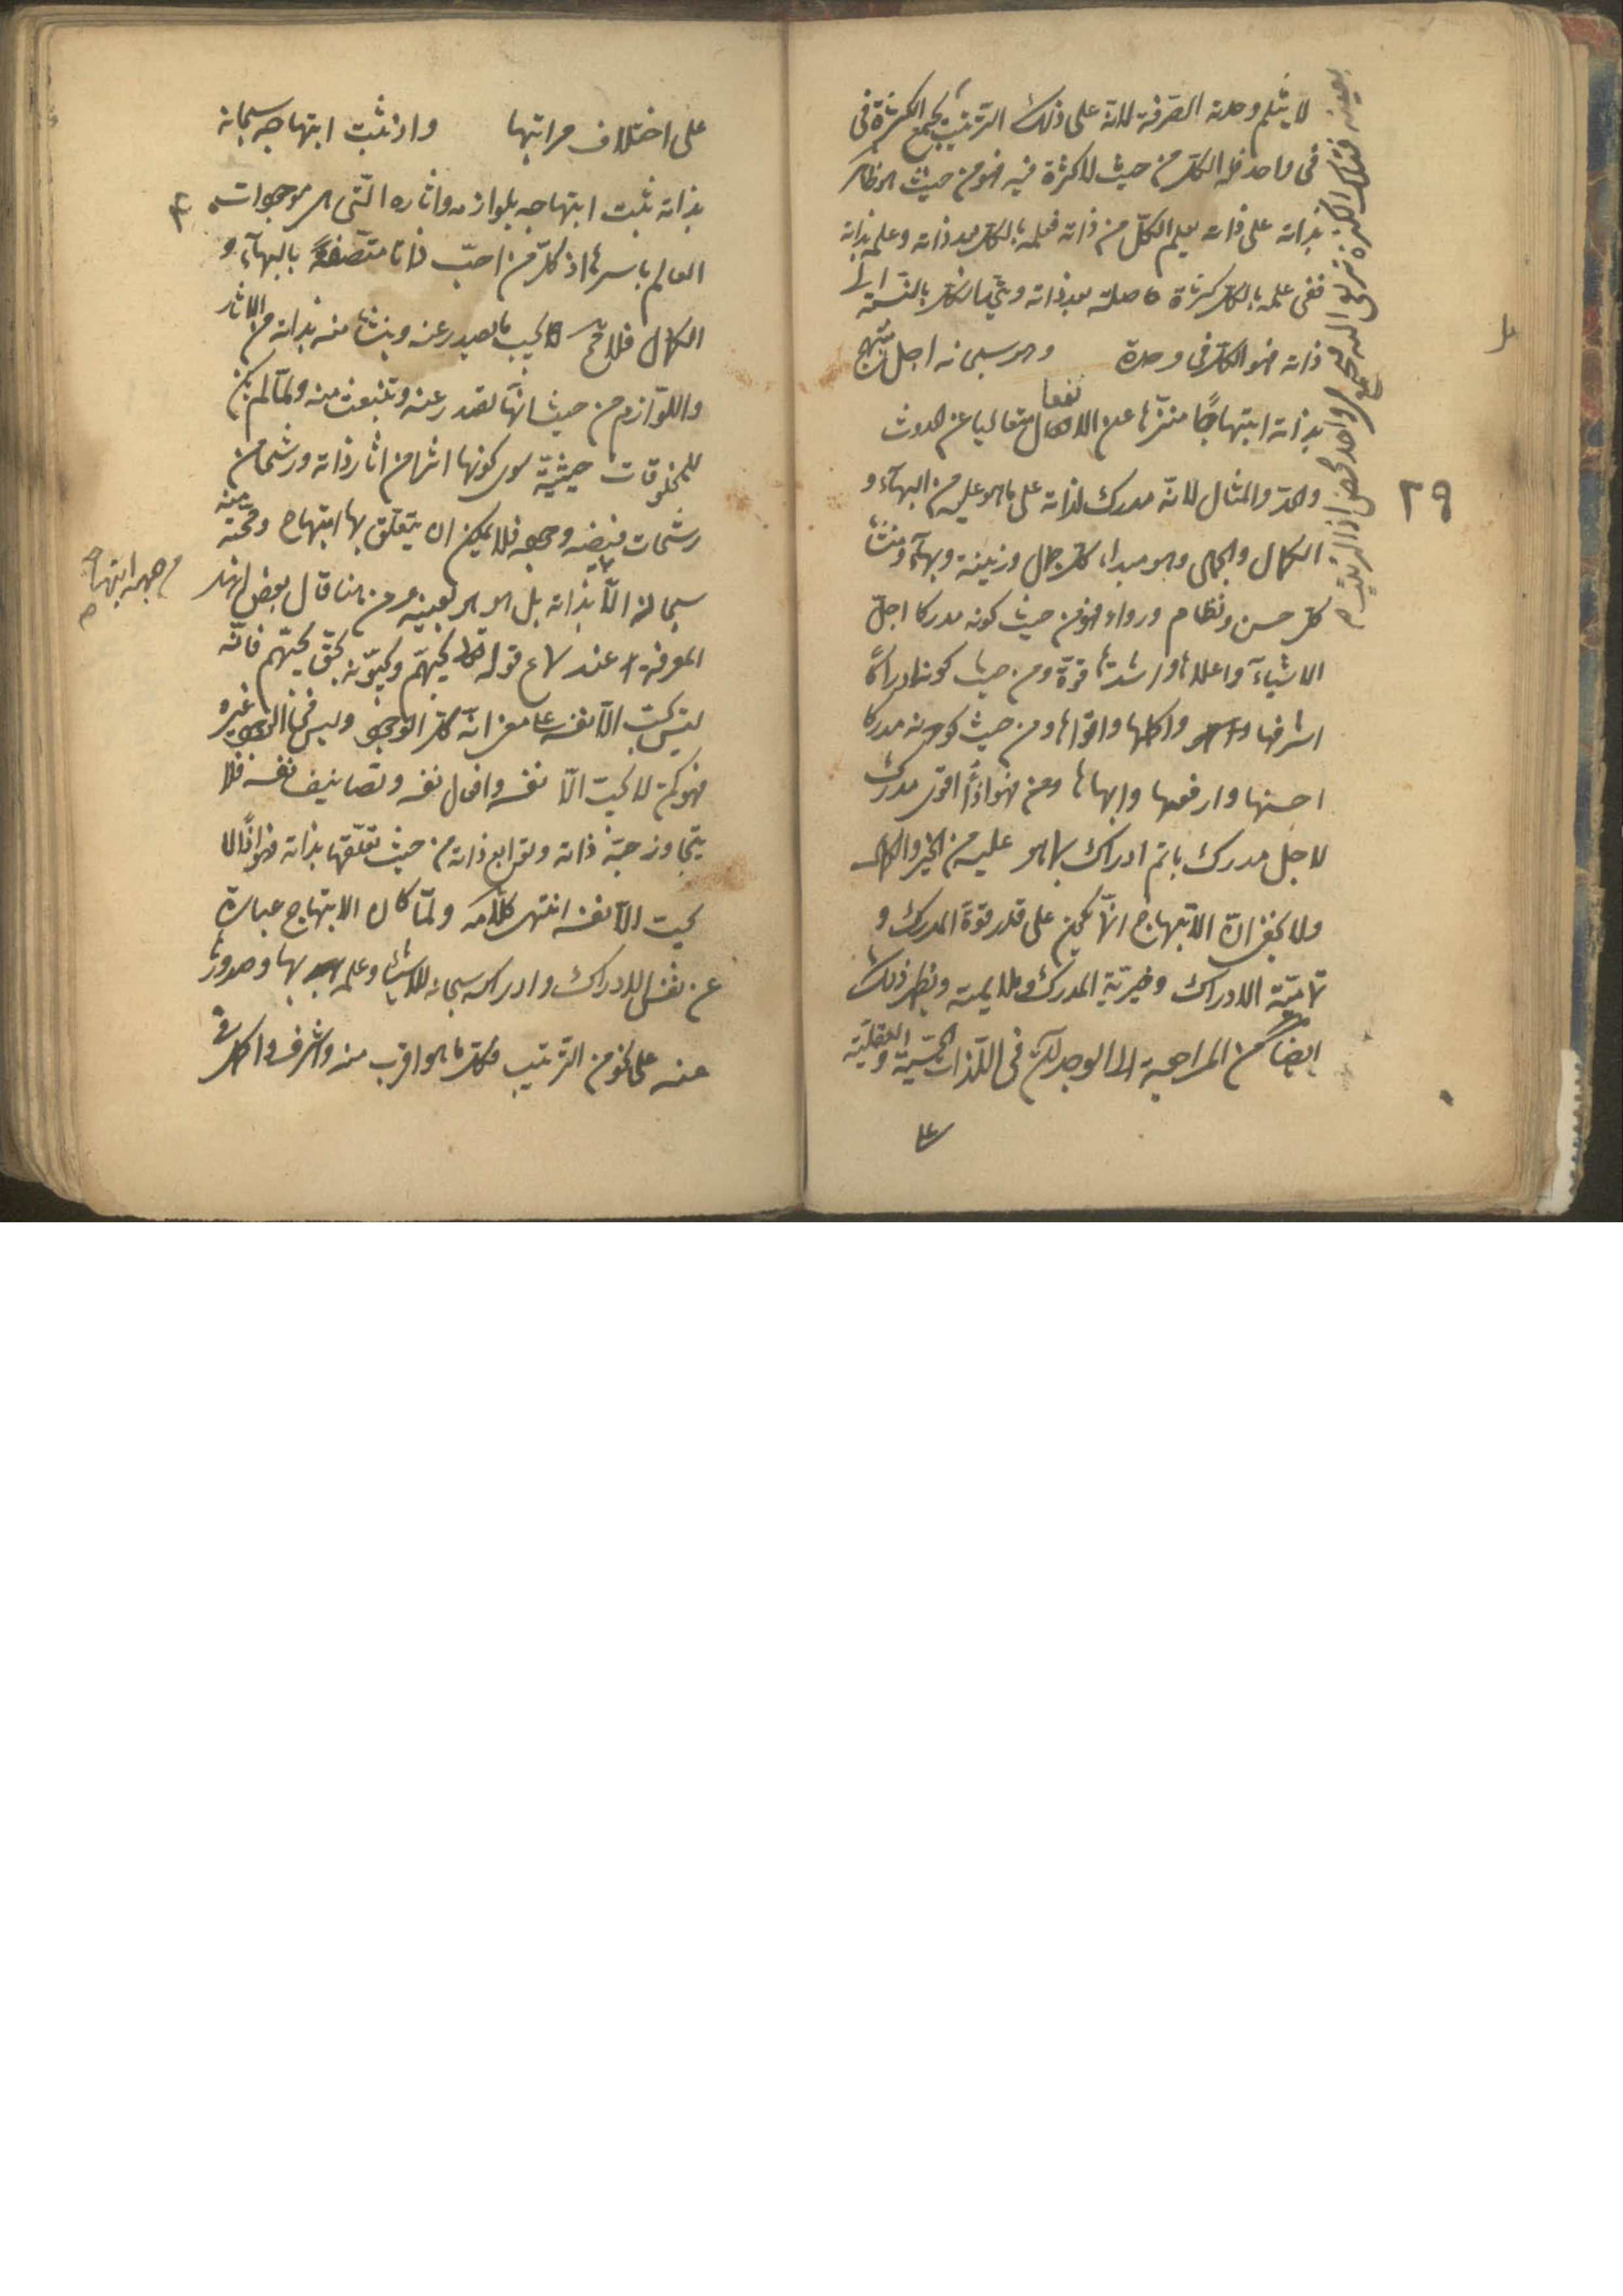 لا ينثلم وحدته الصرفة لانه على ذلك الترتيب يجمع الكثرة فى
فى واحد فله الكل من حيث لا كثرة فيه فهو من حيث هو ظاهر
بذاته على ذاته يعلم الكل من ذاته فعلمه بالكل بعد ذاته وعلمه بذاته
ففى علمه بالكل كثرة حاصلة بعد ذاته ويتحد الكل بالنسبة الى
ذاته فهو الكل فى وحدة وهو سبحانه اجل مبتهج
بذاته ابتهاجا منزها عن الانفعال متعاليا عن الحدوث
نفعا
والحد والمثال لانه مدرك لذاته على ما هو عليه من البهاء و
الكمال والجمال وهو مبداء كل جمال وزينة وبهاء ومنشأ
كل حسن ونظام ورواء فهو من حيث كونه مدركا اجل
الاشياء واعلاها واشدها قوة ومن حيث كونه ادراكا
اشرفها واكملها واقواها ومن حيث كونه مدركا
احسنها وارفعها وابهاها فهو اذا اقوى مدرك
لاجل مدرك باتم ادراك بما هو عليه من الخير والكمال
ولا يخفى ان الابتهاج انما يكون على قدر قوة المدرك و
تمامية الادراك وخيرية المدرك وملايمته ويظهر ذلك
ايضا من المراجعة الى الوجدان فى اللذات الحسية والعقلية
على
٢٩
بعينه
الكثرة ترتقى اليه
واحد محض اذ الترتيب
على اختلاف مراتبها واذ ثبت ابتهاجه سبحانه
بذاته ثبت ابتهاجه بلوازمه واثاره التى هى موجودات
العالم باسرها اذ كل من احب ذاتا متصفة بالبهاء و
الكمال فلا يحب ما يصدر عنه وينشأ منه بذاته من الاثار
واللوازم من حيث انها تصدر عنه وتنبعث منه ولما لم يكن
للمخلوقات حيثية سوى كونها اثرا من اثار ذاته ورشحا من
رشحات فيضه وجوده فلا يمكن ان يتعلق بها ابتهاج ومحبة منه
سبحانه الا بذاته بل هو هو بعينه ومن هنا قال بعض اهل
المعرفة عند سماع قوله تعالى يحبهم ويحبونه بحق يحبهم فانه
ليس يحب الا نفسه على معنى انه كل الوجود وليس فى الوجود غيره
فهو كمن لا يحب الا نفسه وافعال نفسه وتصانيف نفسه فلا
يتجاوز حبه ذاته وتوابع ذاته من حيث تعلقها بذاته فهو اذا لا
يحب الا نفسه انتهى كلامه ولما كان الابتهاج عبارة
عن نفس الادراك وادراكه سبحانه للاشياء وعلمه بها وصدورها
عنه على نحو من الترتيب فكل ما هو اقرب منه واشرف واكمل
جهة ابتهاج